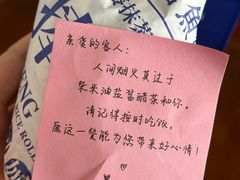 亲爱的客人：
人间烟火莫过于
柴米油盐酱醋茶和你。
请记得按时吃饭，
愿这一餐能为您带来好心情！